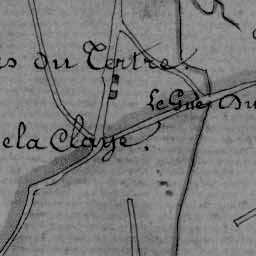 du Tertre.
Le Gué Du
de la Claye.